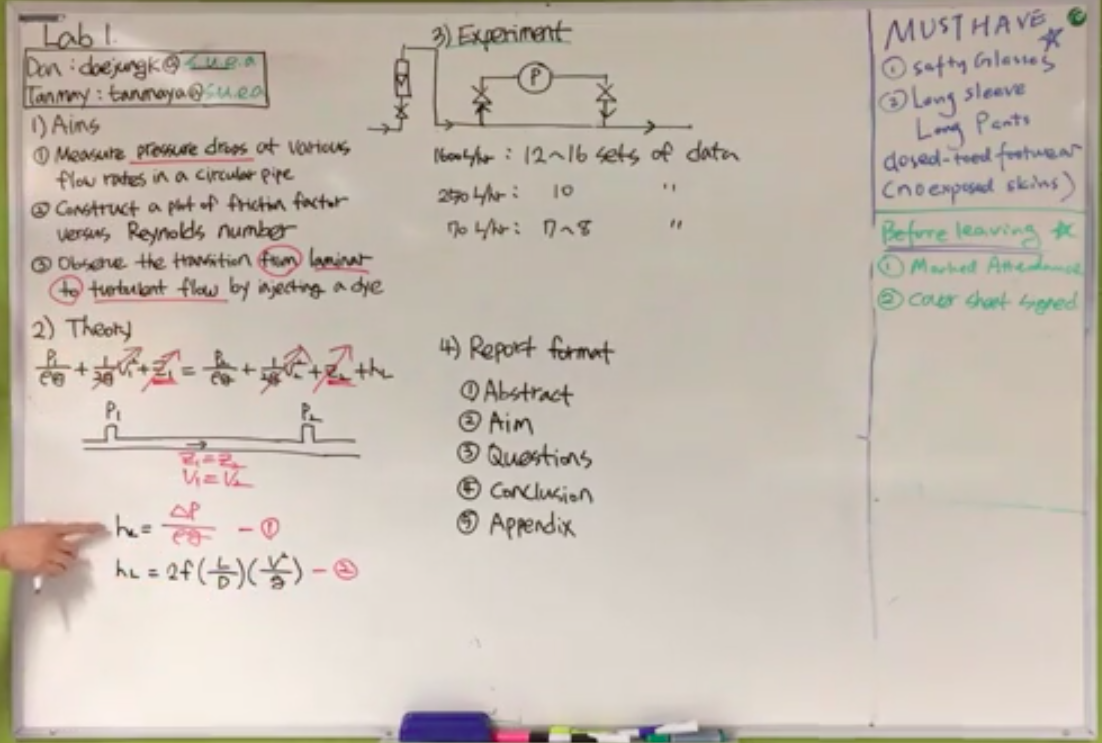 Lab 1.
Dan : daejungk@s.u.e.a
Tanmay : tanmaya@s.u.ea
1) Aims
① Measure pressure drops at various
flow rates in a circular pipe
② Construct a plot of friction factor
versus Reynolds number
③ Observe the transition from laminar
to turbulant flow by injecting a dye
2) Theory
P₁/ρg + 1/2g V₁² + Z₁ = P₂/ρg + 1/2g V₂² + Z₂ + hL
P₁ P₂
Z₁ = Z₂
V₁ = V₂
hL = ΔP/ρg - ①
hL = 2f(L/D)(V²/g) - ②
3) Experiment
P
1600 L/hr : 12~16 sets of data
250 L/hr : 10 "
70 L/hr : 7~8 "
4) Report format
① Abstract
② Aim
③ Questions
④ Conclusion
⑤ Appendix
MUST HAVE
① Safty Glasses
② Long sleeve
Long Pants
closed-toed footwear
(no exposed skins)
Before leaving
① Marked Attendance
② Cover sheet signed